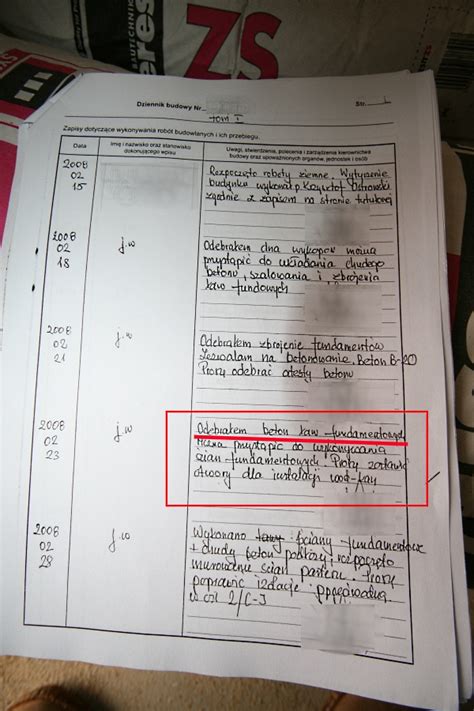 ZS
Dziennik budowy Nr
tom I
Str. 1
Zapisy dotyczące wykonywania robót budowlanych i ich przebiegu.
Data
Imię i nazwisko oraz stanowisko
dokonującego wpisu
Uwagi, stwierdzenia, polecenia i zarządzenia kierownictwa
budowy oraz upoważnionych organów, jednostek i osób
2008
02
15
Rozpoczęto roboty ziemne. Wytyczenie
budynku wykonał p. Krzysztof Ostrowski
zgodnie z zapisem na stronie tytułowej
2008
02
18
j.w
Odebrałem dna wykopów można
przystąpić do układania chudego
betonu, szalowania i zbrojenia
ław fundowych
2008
02
21
j.w
Odebrałem zbrojenie fundamentów
Zezwalam na betonowanie. Beton B-20
Proszę odebrać atesty betonu
2008
02
23
j.w
Odebrałem beton ław fundamentowych
Można przystąpić do wykonywania
ścian fundamentowych Proszę zostawić
otwory dla instalacji wod-kan
2008
02
28
j.w
Wykonano ławy ściany fundamentowe
+ chudy beton posadzki, rozpoczęto
murowanie ścian parteru. Proszę
poprawić izolację ppoziwilną
w osi 2/C-J